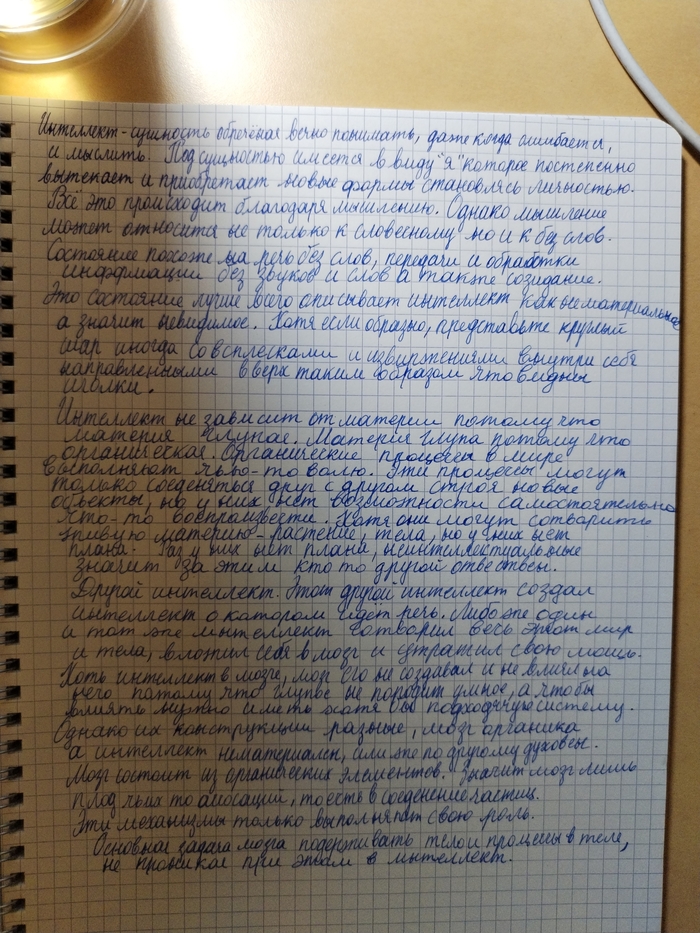 Интеллект - сущность обречёная вечно понимать, даже когда ошибается,
и мыслить. Под сущностью имеется в виду "я" которое постепенно
вытекает и приобретает новые формы становлясь личностью.
Всё это происходит благодаря мышлению. Однако мышление
может относится не только к словесному но и к без слов.
Состояние похоже на речь без слов, передачи и обработки
информации без звуков и слов а также созидание.
Это состояние лучше всего описывает интеллект как нематериальное
а значит невидимое. Хотя если образно, представьте круглый
шар иногда со всплесками и извержениями внутри себя
направленными вверх таким образом что видны
иголки.
Интеллект не зависит от материи потому что
материя глупая. Материя глупа потому что
органическая. Органические процесы в мире
выполняют чью-то волю. Эти процесы могут
только соеденяться друг с другом строя новые
объекты, но у них нет возможности самостоятельно
что-то воспроизвести. Хотя они могут сотворить
живую материю - растение, тела, но у них нет
плана. Раз у них нет плана, неинтеллектуальные
значит за этим кто то другой ответсвен.
Другой интеллект. Этот другой интеллект создал
интеллект о котором идёт речь. Либо же один
и тот же интеллект сотворил весь этот мир
и тела, вложил себя в мозг и утратил свою мощь.
Хоть интеллект в мозге, мозг его не создавал и не влиял на
него потому что глупое не породит умное, а чтобы
влиять нужно иметь хотя бы подходящую систему.
Однако их конструкции разные, мозг органика
а интеллект нематериален, или же по другому духовен.
Мозг состоит из органических элементов. Значит мозг лишь
плод чьих то аносаций, то есть в соеденение частиц.
Эти механизмы только выполняют свою роль.
Основная задача мозга подерживать тело и процесы в теле,
не проникая при этом в интеллект.